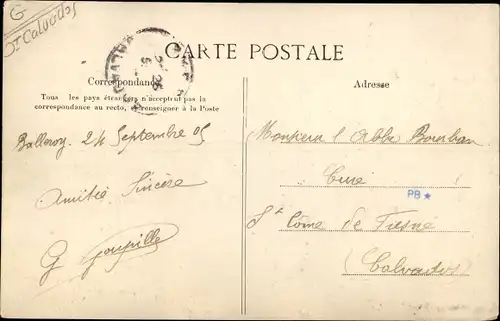 G
Dt Calvados
CARTE POSTALE
Correspondance
Tous les pays étrangers n'acceptent pas la
correspondance au recto, se renseigner à la Poste
Balleroy 24 Septembre 05
Amitié Sincère
G Goupille
Adresse
Monsieur l'Abbé Bourban
Curé
PB★
St Côme de Fresné
(Calvados)